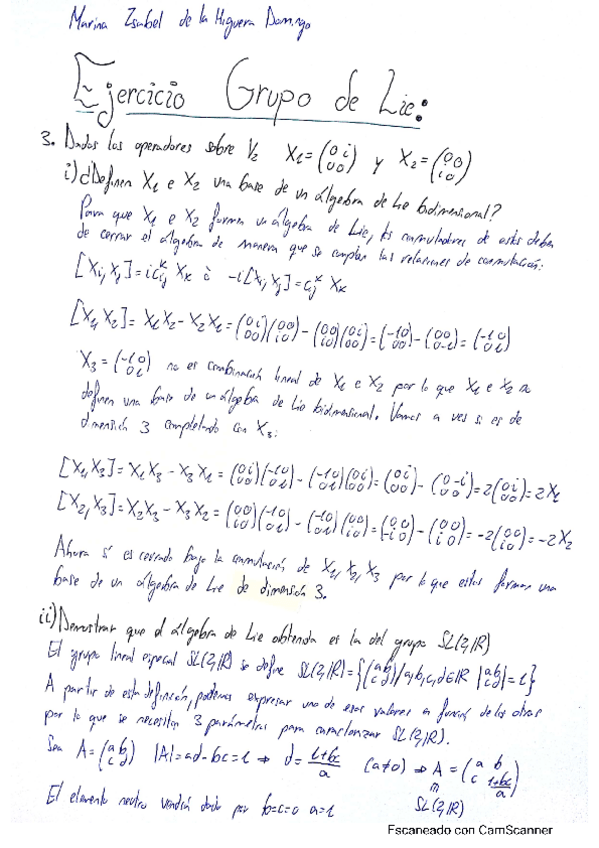 Marina Isabel de la Higuera Domingo
Ejercicio Grupo de Lie:
3. Dados los operadores sobre V₂ X₁=(0 i; 0 0) y X₂=(0 0; i 0)
i) ¿Definen X₁ e X₂ una base de un álgebra de Lie bidimensional?
Para que X₁ e X₂ formen un álgebra de Lie, los conmutadores de estos deben
de cerrar el álgebra de manera que se cumplan las relaciones de conmutación:
[Xᵢ, Xⱼ]=i cᵢⱼᵏ Xₖ ó -i[Xᵢ, Xⱼ]=cᵢⱼᵏ Xₖ
[X₁, X₂]= X₁X₂ - X₂X₁=(0 i; 0 0)(0 0; i 0) - (0 0; i 0)(0 i; 0 0)=(-1 0; 0 0) - (0 0; 0 -1)=(-1 0; 0 1)
X₃=(-1 0; 0 1) no es combinación lineal de X₁ e X₂ por lo que X₁ e X₂
definen una base de un álgebra de Lie bidimensional. Vamos a ver si es de
dimensión 3 completando con X₃:
[X₁, X₃]= X₁X₃ - X₃X₁=(0 i; 0 0)(-1 0; 0 1) - (-1 0; 0 1)(0 i; 0 0)=(0 i; 0 0) - (0 -i; 0 0)=2(0 i; 0 0)=2X₁
[X₂, X₃]= X₂X₃ - X₃X₂=(0 0; i 0)(-1 0; 0 1) - (-1 0; 0 1)(0 0; i 0)=(0 0; -i 0) - (0 0; i 0)=-2(0 0; i 0)=-2X₂
Ahora sí es cerrado bajo la conmutación de X₁, X₂, X₃ por lo que estos forman una
base de un álgebra de Lie de dimensión 3.
ii) Demostrar que el álgebra de Lie obtenida es la del grupo SL(2,ℝ)
El grupo lineal especial SL(2,ℝ) se define SL(2,ℝ)={(a b; c d)/a,b,c,d∈ℝ |a b; c d|=1}
A partir de esta definición, podemos expresar uno de esos valores en función de los otros
por lo que se necesitan 3 parámetros para caracterizar SL(2,ℝ).
Sea A=(a b; c d) |A|=ad-bc=1 ⇒ d=(1+bc)/a (a≠0) ⇒ A=(a b; c (1+bc)/a)
∈ SL(2,ℝ)
El elemento neutro vendrá dado por b=c=0 a=1
Escaneado con CamScanner